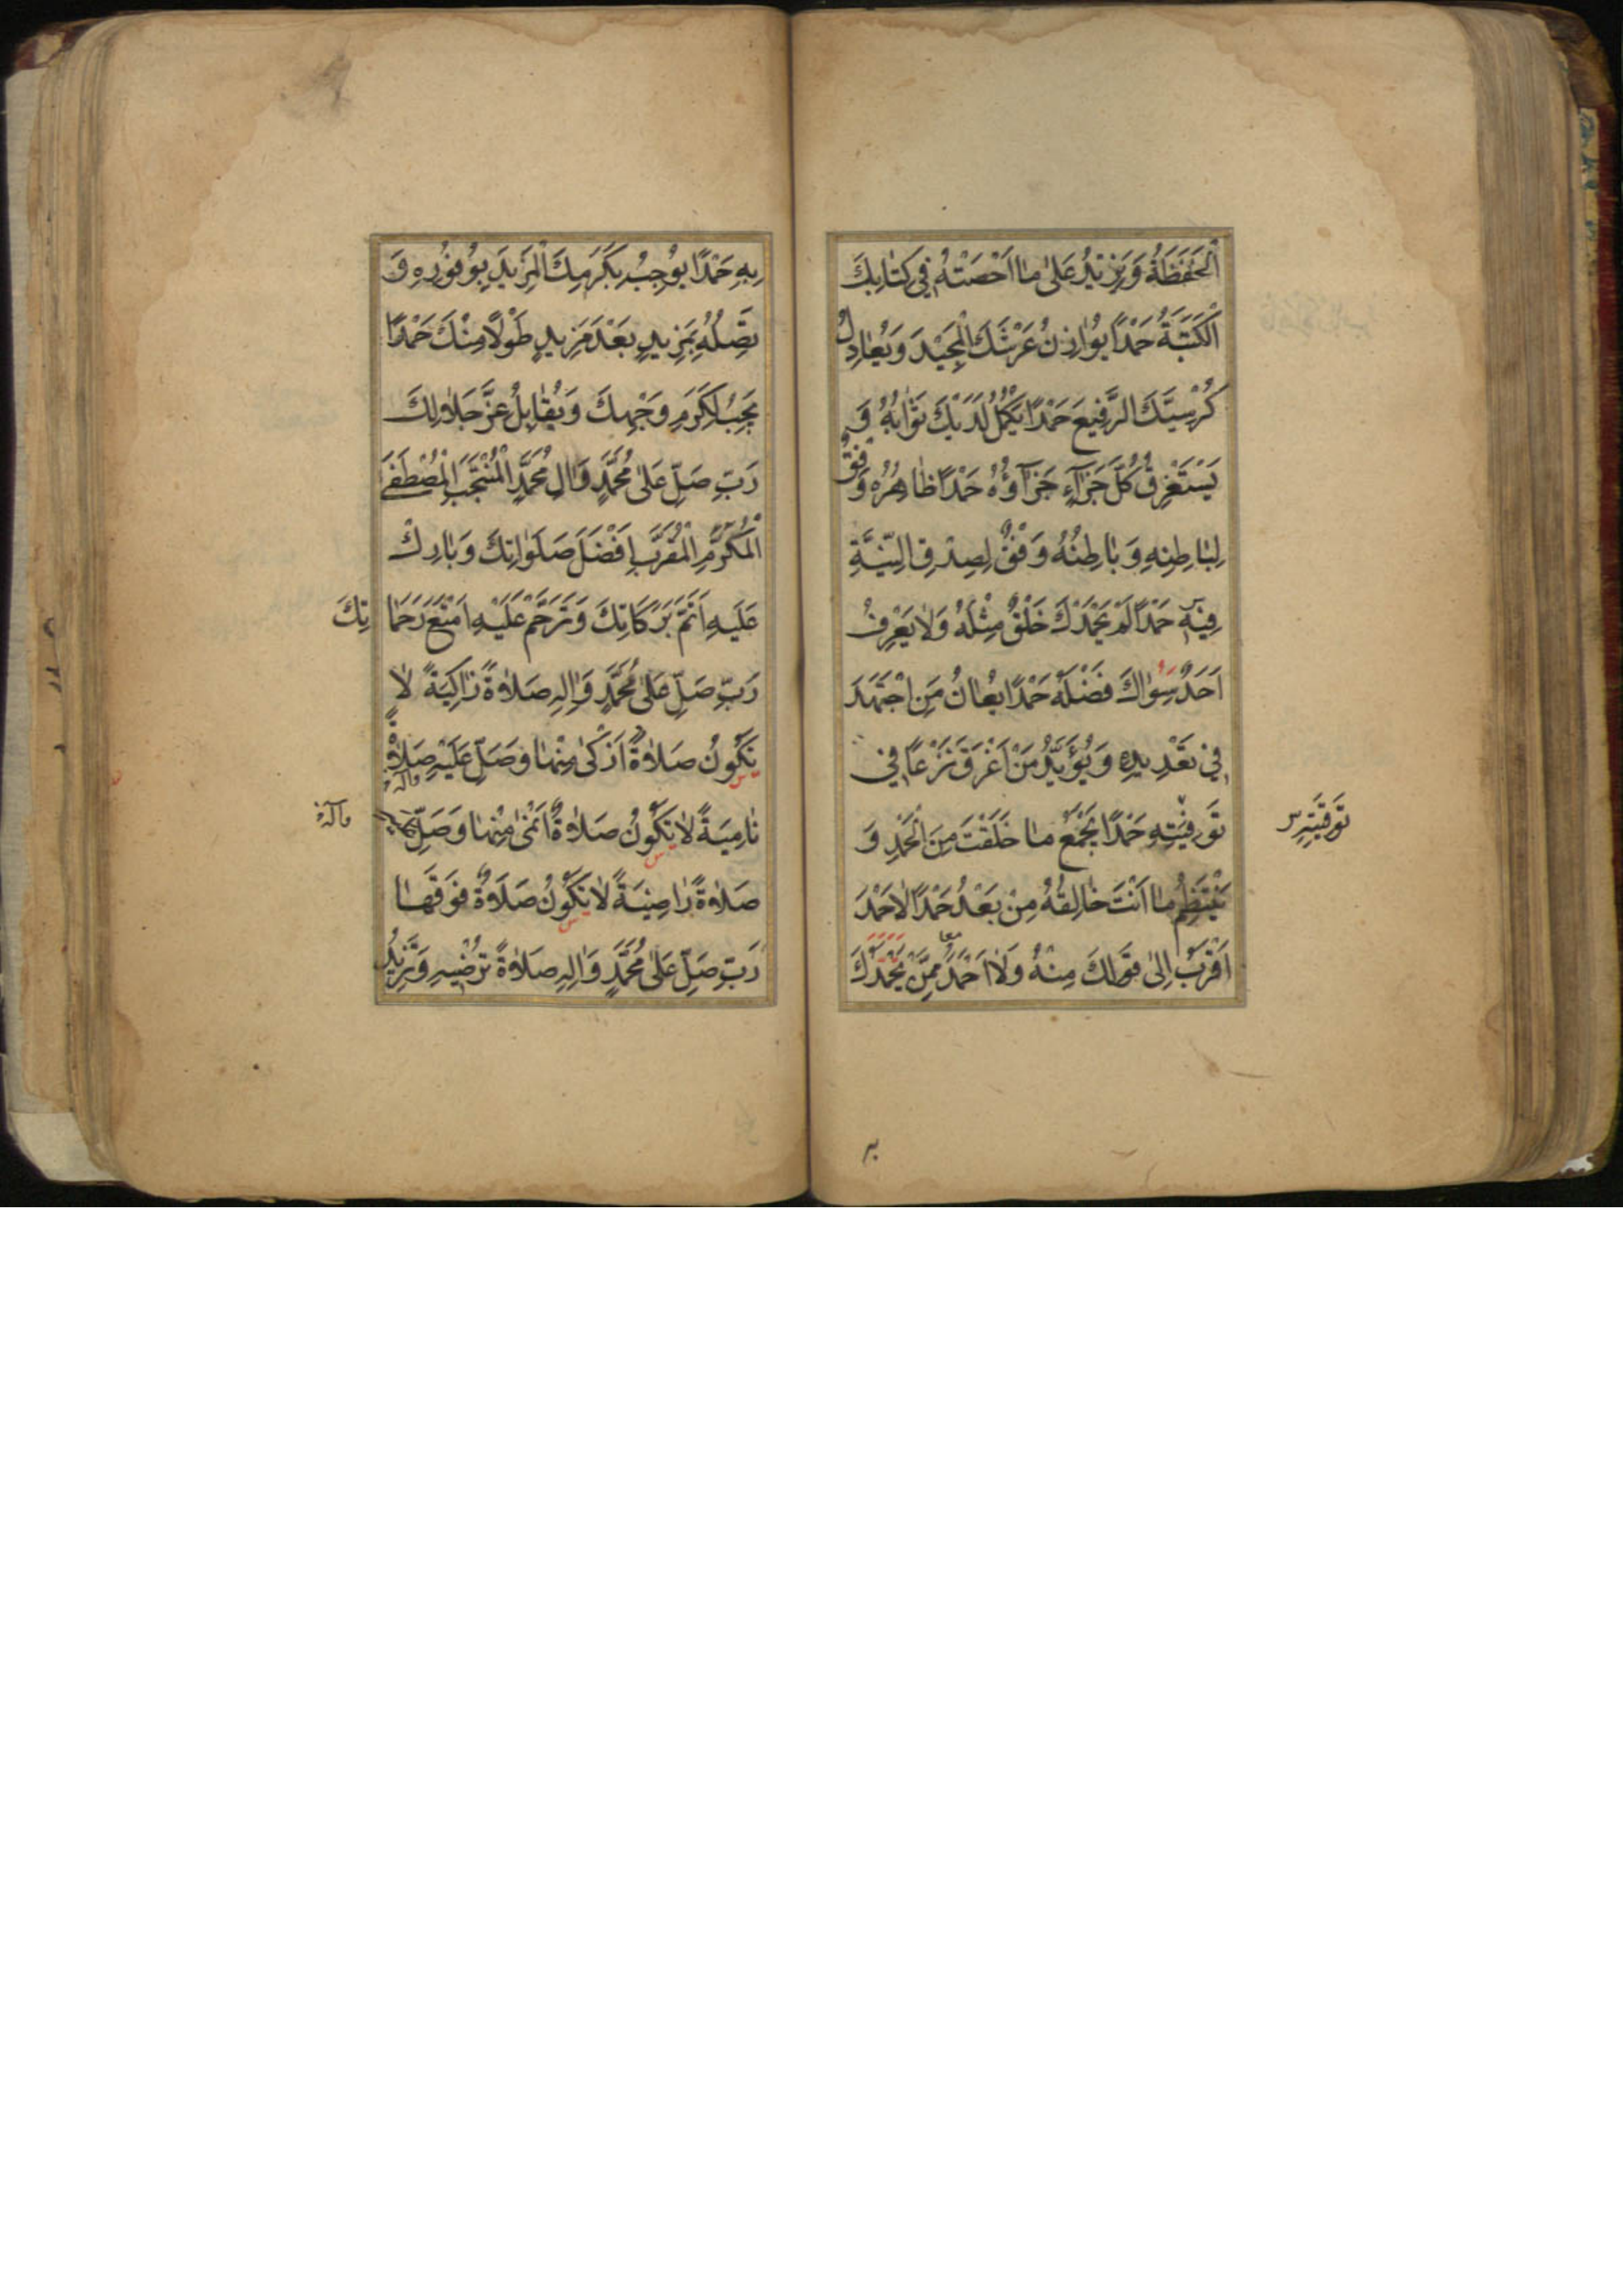 اَلْحَفَظَةُ وَيَزِيْدُ عَلٰى مٰا اَحْصَتْهُ فِي كِتٰابِكَ
اَلْكَتَبَةُ حَمْدًا يُوٰازِنُ عَرْشَكَ الْمَجِيْدَ وَيُعٰادِلُ
كُرْسِيَّكَ الرَّفِيعَ حَمْدًا يَكْمُلُ لَدَيْكَ ثَوٰابُهُ وَ
يَسْتَغْرِقُ كُلَّ جَزَآءٍ جَزَآؤُهُ حَمْدًا ظٰاهِرُهُ وَفْقٌ
لِبٰاطِنِهِ وَبٰاطِنُهُ وَفْقٌ لِصِدْقِ النِّيَّةِ
فِيْهِ حَمْدًا لَمْ يَحْمَدْكَ خَلْقٌ مِثْلَهُ وَلٰا يَعْرِفُ
اَحَدٌ سِوٰاكَ فَضْلَهُ حَمْدًا يُعٰانُ مَنِ اجْتَهَدَ
فِي تَعْدِيدِهِ وَيُؤَيَّدُ مَنْ اَغْرَقَ نَزْعًا فِي
تَوْفِيَتِهِ حَمْدًا يَجْمَعُ مٰا خَلَقْتَ مِنَ الْحَمْدِ وَ
يَنْتَظِمُ مٰا اَنْتَ خٰالِقُهُ مِنْ بَعْدُ حَمْدًا لٰا حَمْدَ
اَقْرَبُ اِلٰى قَوْلِكَ مِنْهُ وَلٰا اَحْمَدُ مِمَّنْ يَحْمَدُكَ
معا
بِهِ
بِهِ حَمْدًا يُوْجِبُ بِكَرَمِكَ الْمَزِيْدَ بِوُفُوْرِهِ وَ
تَصِلُهُ بِمَزِيدٍ بَعْدَ مَزِيدٍ طَوْلًا مِنْكَ حَمْدًا
يَجِبُ لِكَرَمِ وَجْهِكَ وَيُقٰابِلُ عِزَّ جَلٰالِكَ
رَبِّ صَلِّ عَلٰى مُحَمَّدٍ وَاٰلِ مُحَمَّدٍ الْمُنْتَجَبِ الْمُصْطَفٰى
الْمُكَرَّمِ الْمُقَرَّبِ اَفْضَلَ صَلَوٰاتِكَ وَبٰارِكْ
عَلَيْهِ اَتَمَّ بَرَكَاتِكَ وَتَرَحَّمْ عَلَيْهِ اَمْتَعَ رَحَمٰاتِكَ
رَبِّ صَلِّ عَلٰى مُحَمَّدٍ وَاٰلِهِ صَلٰاةً زٰاكِيَةً لٰا
تَكُوْنُ صَلٰاةٌ اَزْكٰى مِنْهٰا وَصَلِّ عَلَيْهِ صَلٰاةً
وآله
نٰامِيَةً لٰا تَكُوْنُ صَلٰاةٌ اَنْمٰى مِنْهٰا وَصَلِّ
وآله
صَلٰاةً رٰاضِيَةً لٰا تَكُوْنُ صَلَاةٌ فَوْقَهٰا
رَبِّ صَلِّ عَلٰى مُحَمَّدٍ وَاٰلِهِ صَلٰاةً تُرْضِيهِ وَتَزِيْدُ